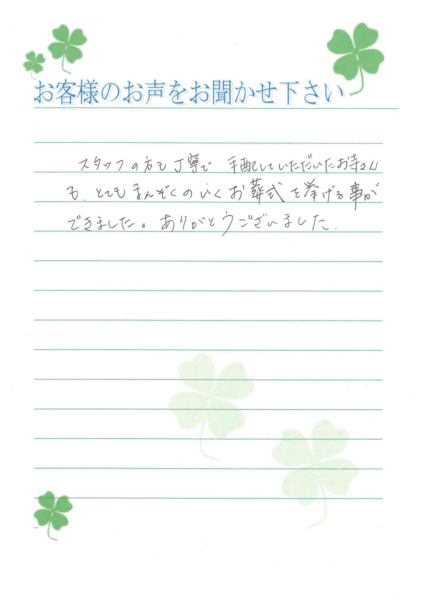 お客様のお声をお聞かせ下さい
スタッフの方も丁寧で 手配していただいたお寺さん
も、とてもまんぞくのいくお葬式を挙げる事が
できました。ありがとうございました.